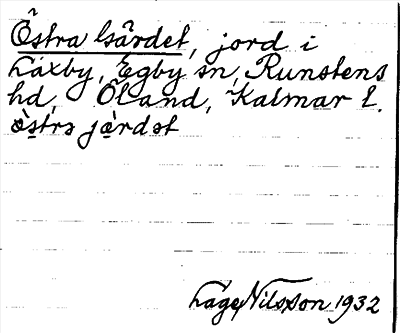 Östra Gärdet, jord i
Laxby, Egby sn, Runstens
hd, Öland, Kalmar l.
östrs jardet
Lage Nilsson 1932